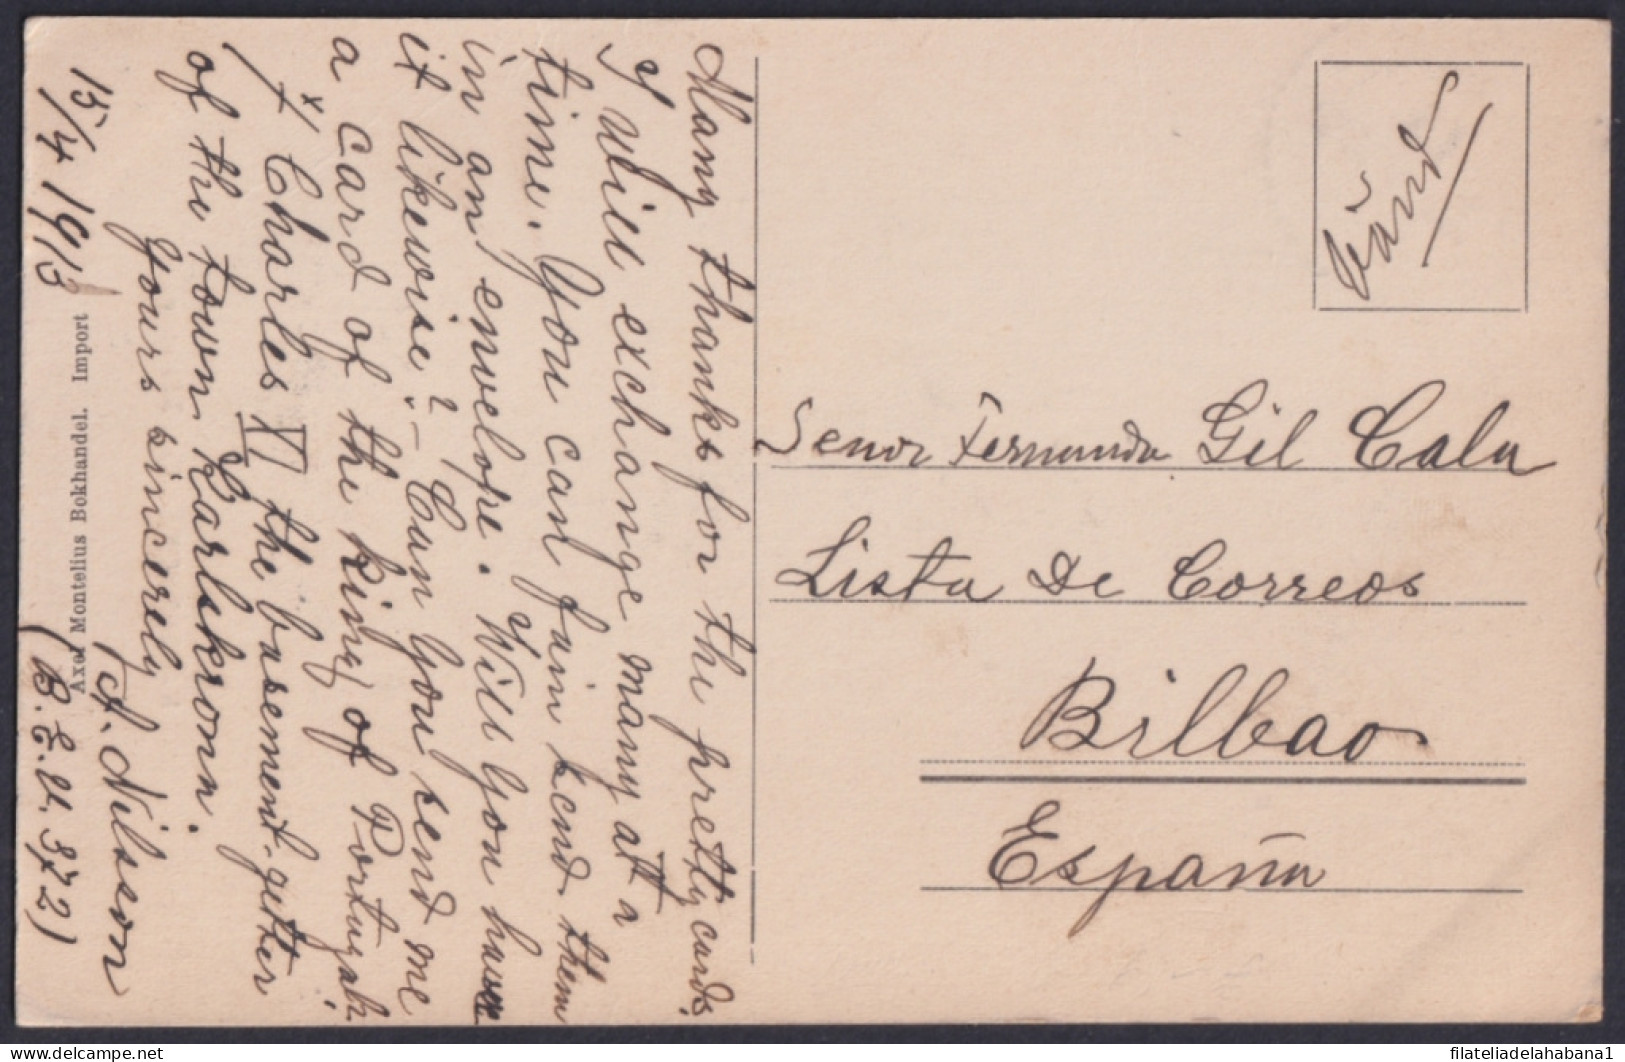 Many thanks for the pretty cards.
I will exchange many at a
time. You can fain send them
in an envelope. Will you have
it likewise? – Can you send me
a card of the king of Portugal.
x) Charles XI the basement-getter
of the town Karlskrona.
Yours sincerely
A. Nilsson
15/4 1913
(B.E.U. 372)
Axel Montelius Bokhandel. Import
Senor Fernando Gil Cala
Lista De Correos
Bilbao
España
filateliadelahabana1